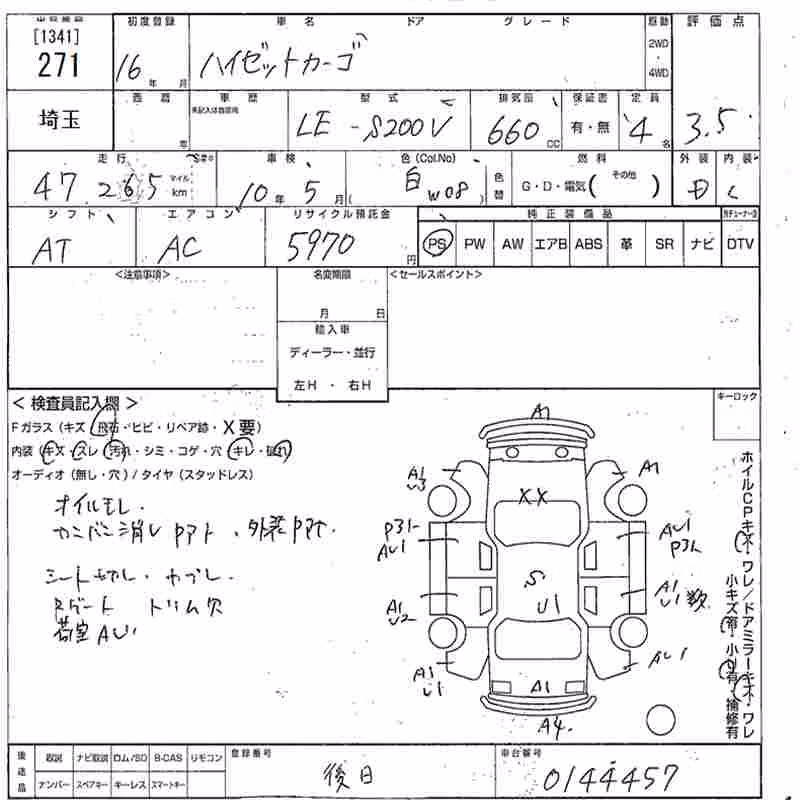 [1341]
271
初度登録
車名
ドア
グレード
駆動
評価点
16年 月
ハイゼットカーゴ
2WD
・
4WD
埼玉
西暦
年
車歴
未記入は自家用
型式
LE -S200V
排気量
660 CC
保証書
有・無
定員
4名
3.5
走行
47,265
マイル
km
車検
10年 5月
色(Col.No)
白 W08
色替
燃料
G・D・電気( その他 )
外装
D
内装
C
シフト
AT
エアコン
AC
リサイクル預託金
5970円
純正装備品
PS PW AW エアB ABS 革 SR ナビ DTV
<注意事項>
名変期限
月 日
<セールスポイント>
輸入車
ディーラー・並行
左H ・ 右H
< 検査員記入欄 >
キーロック
Fガラス(キズ・飛石・ヒビ・リペア跡・X要)
内装(キズ・スレ・汚れ・シミ・コゲ・穴・キレ・破れ)
オーディオ(無し・穴)/タイヤ(スタッドレス)
オイルモレ.
カンバン消し Pアト、外装Pアト.
シート切レ・ヤブレ.
Rゲート トリム穴
荷室 AU1
A1
A1
U3
A1
XX
P31
AU1
AU1
P31
S
U1
A1
U2
A1
U1数
A1
U1
AU1
A1
A4.
ホイルCPキズ・ワレ/ドアミラーキズ・ワレ
小キズ有・小凹有・補修有
後送品
取説 ナビ取説 ロム/SD B-CAS リモコン
ナンバー スペアキー キーレス スマートキー
登録番号
後日
車台番号
0144457